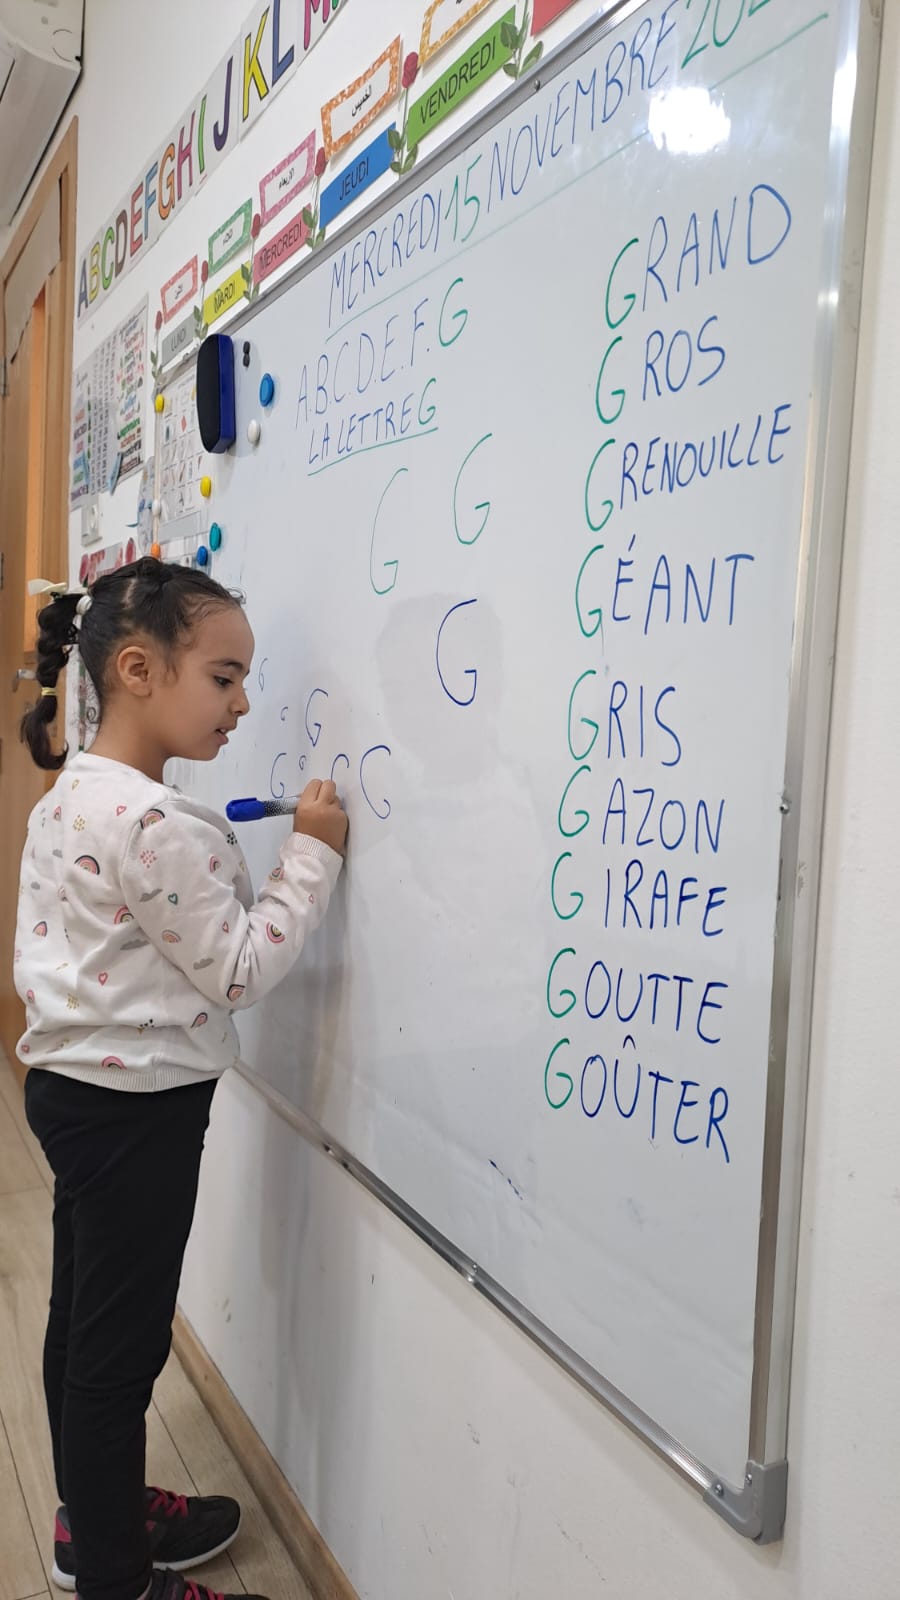 ABCDEFGHIJKLM
LUNDI
MARDI
MERCREDI
JEUDI
VENDREDI
الأربعاء
الخميس
MERCREDI 15 NOVEMBRE
A.B.C.D.E.F.G
LA LETTRE G
G G
G
G
G G
G G G
GRAND
GROS
GRENOUILLE
GÉANT
GRIS
GAZON
GIRAFE
GOUTTE
GOÛTER